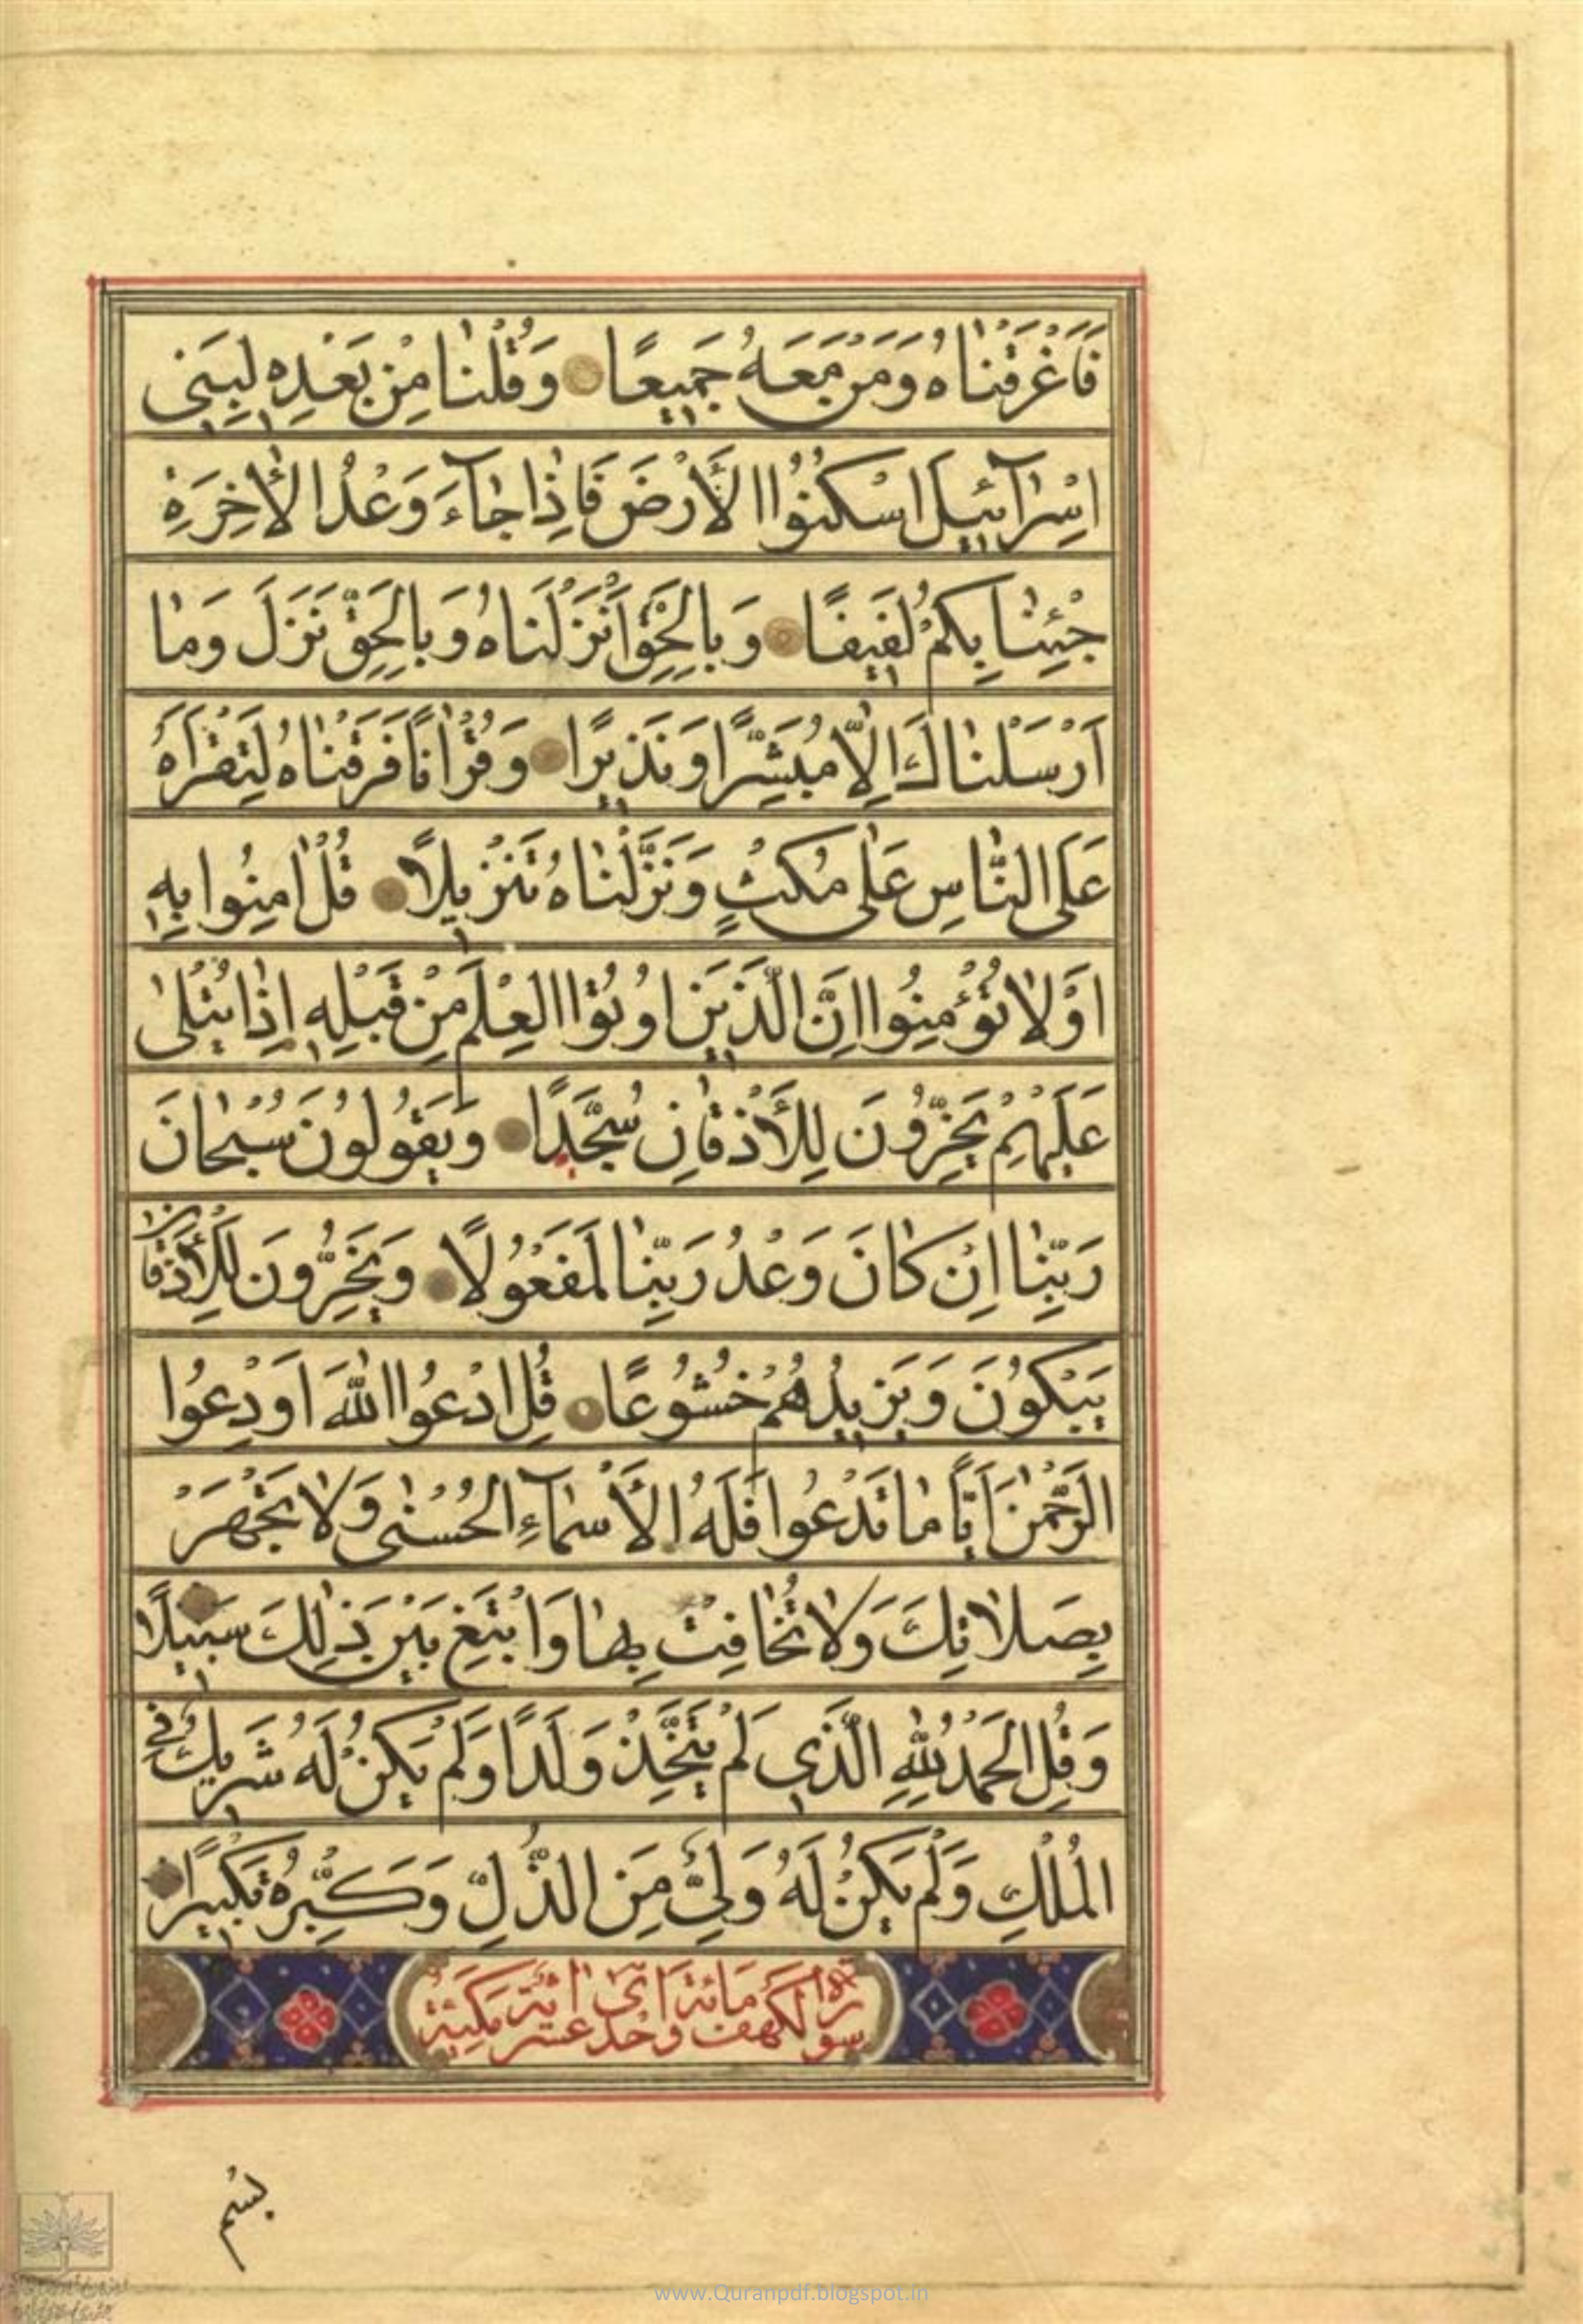 فَاَغْرَقْنٰاهُ وَمَنْ مَعَهُ جَمِيعًا وَقُلْنٰا مِنْ بَعْدِهِ لِبَنِي
اِسْرٰآئِيلَ اسْكُنُوا الْأَرْضَ فَاِذٰا جٰآءَ وَعْدُ الْأٰخِرَةِ
جِئْنٰا بِكُمْ لَفِيفًا وَبِالْحَقِّ اَنْزَلْنَاهُ وَبِالْحَقِّ نَزَلَ وَمٰا
اَرْسَلْنٰاكَ اِلّٰا مُبَشِّرًا وَنَذِيرًا وَقُرْاٰنًا فَرَقْنٰاهُ لِتَقْرَاَهُ
عَلَى النّٰاسِ عَلٰى مُكْثٍ وَنَزَّلْنٰاهُ تَنْزِيلًا قُلْ اٰمِنُوا بِهِ
اَوْ لٰا تُؤْمِنُوا اِنَّ الَّذِينَ اُوتُوا الْعِلْمَ مِنْ قَبْلِهِ اِذٰا يُتْلٰى
عَلَيْهِمْ يَخِرُّونَ لِلْأَذْقٰانِ سُجَّدًا وَيَقُولُونَ سُبْحٰانَ
رَبِّنٰا اِنْ كٰانَ وَعْدُ رَبِّنٰا لَمَفْعُولًا وَيَخِرُّونَ لِلْأَذْقٰانِ
يَبْكُونَ وَيَزِيدُهُمْ خُشُوعًا قُلِ ادْعُوا اللّٰهَ اَوِ دْعُوا
الرَّحْمٰنَ اَيًّا مٰا تَدْعُوا فَلَهُ الْأَسْمٰآءُ الْحُسْنٰى وَلٰا تَجْهَرْ
بِصَلٰاتِكَ وَلٰا تُخٰافِتْ بِهٰا وَابْتَغِ بَيْنَ ذٰلِكَ سَبِيلًا
وَقُلِ الْحَمْدُ لِلّٰهِ الَّذِي لَمْ يَتَّخِذْ وَلَدًا وَلَمْ يَكُنْ لَهُ شَرِيكٌ فِي
الْمُلْكِ وَلَمْ يَكُنْ لَهُ وَلِيٌّ مِنَ الذُّلِّ وَكَبِّرْهُ تَكْبِيرًا
سورة الكهف مائة وحد عشر اية مكية
بسم
www.Quranpdf.blogspot.in